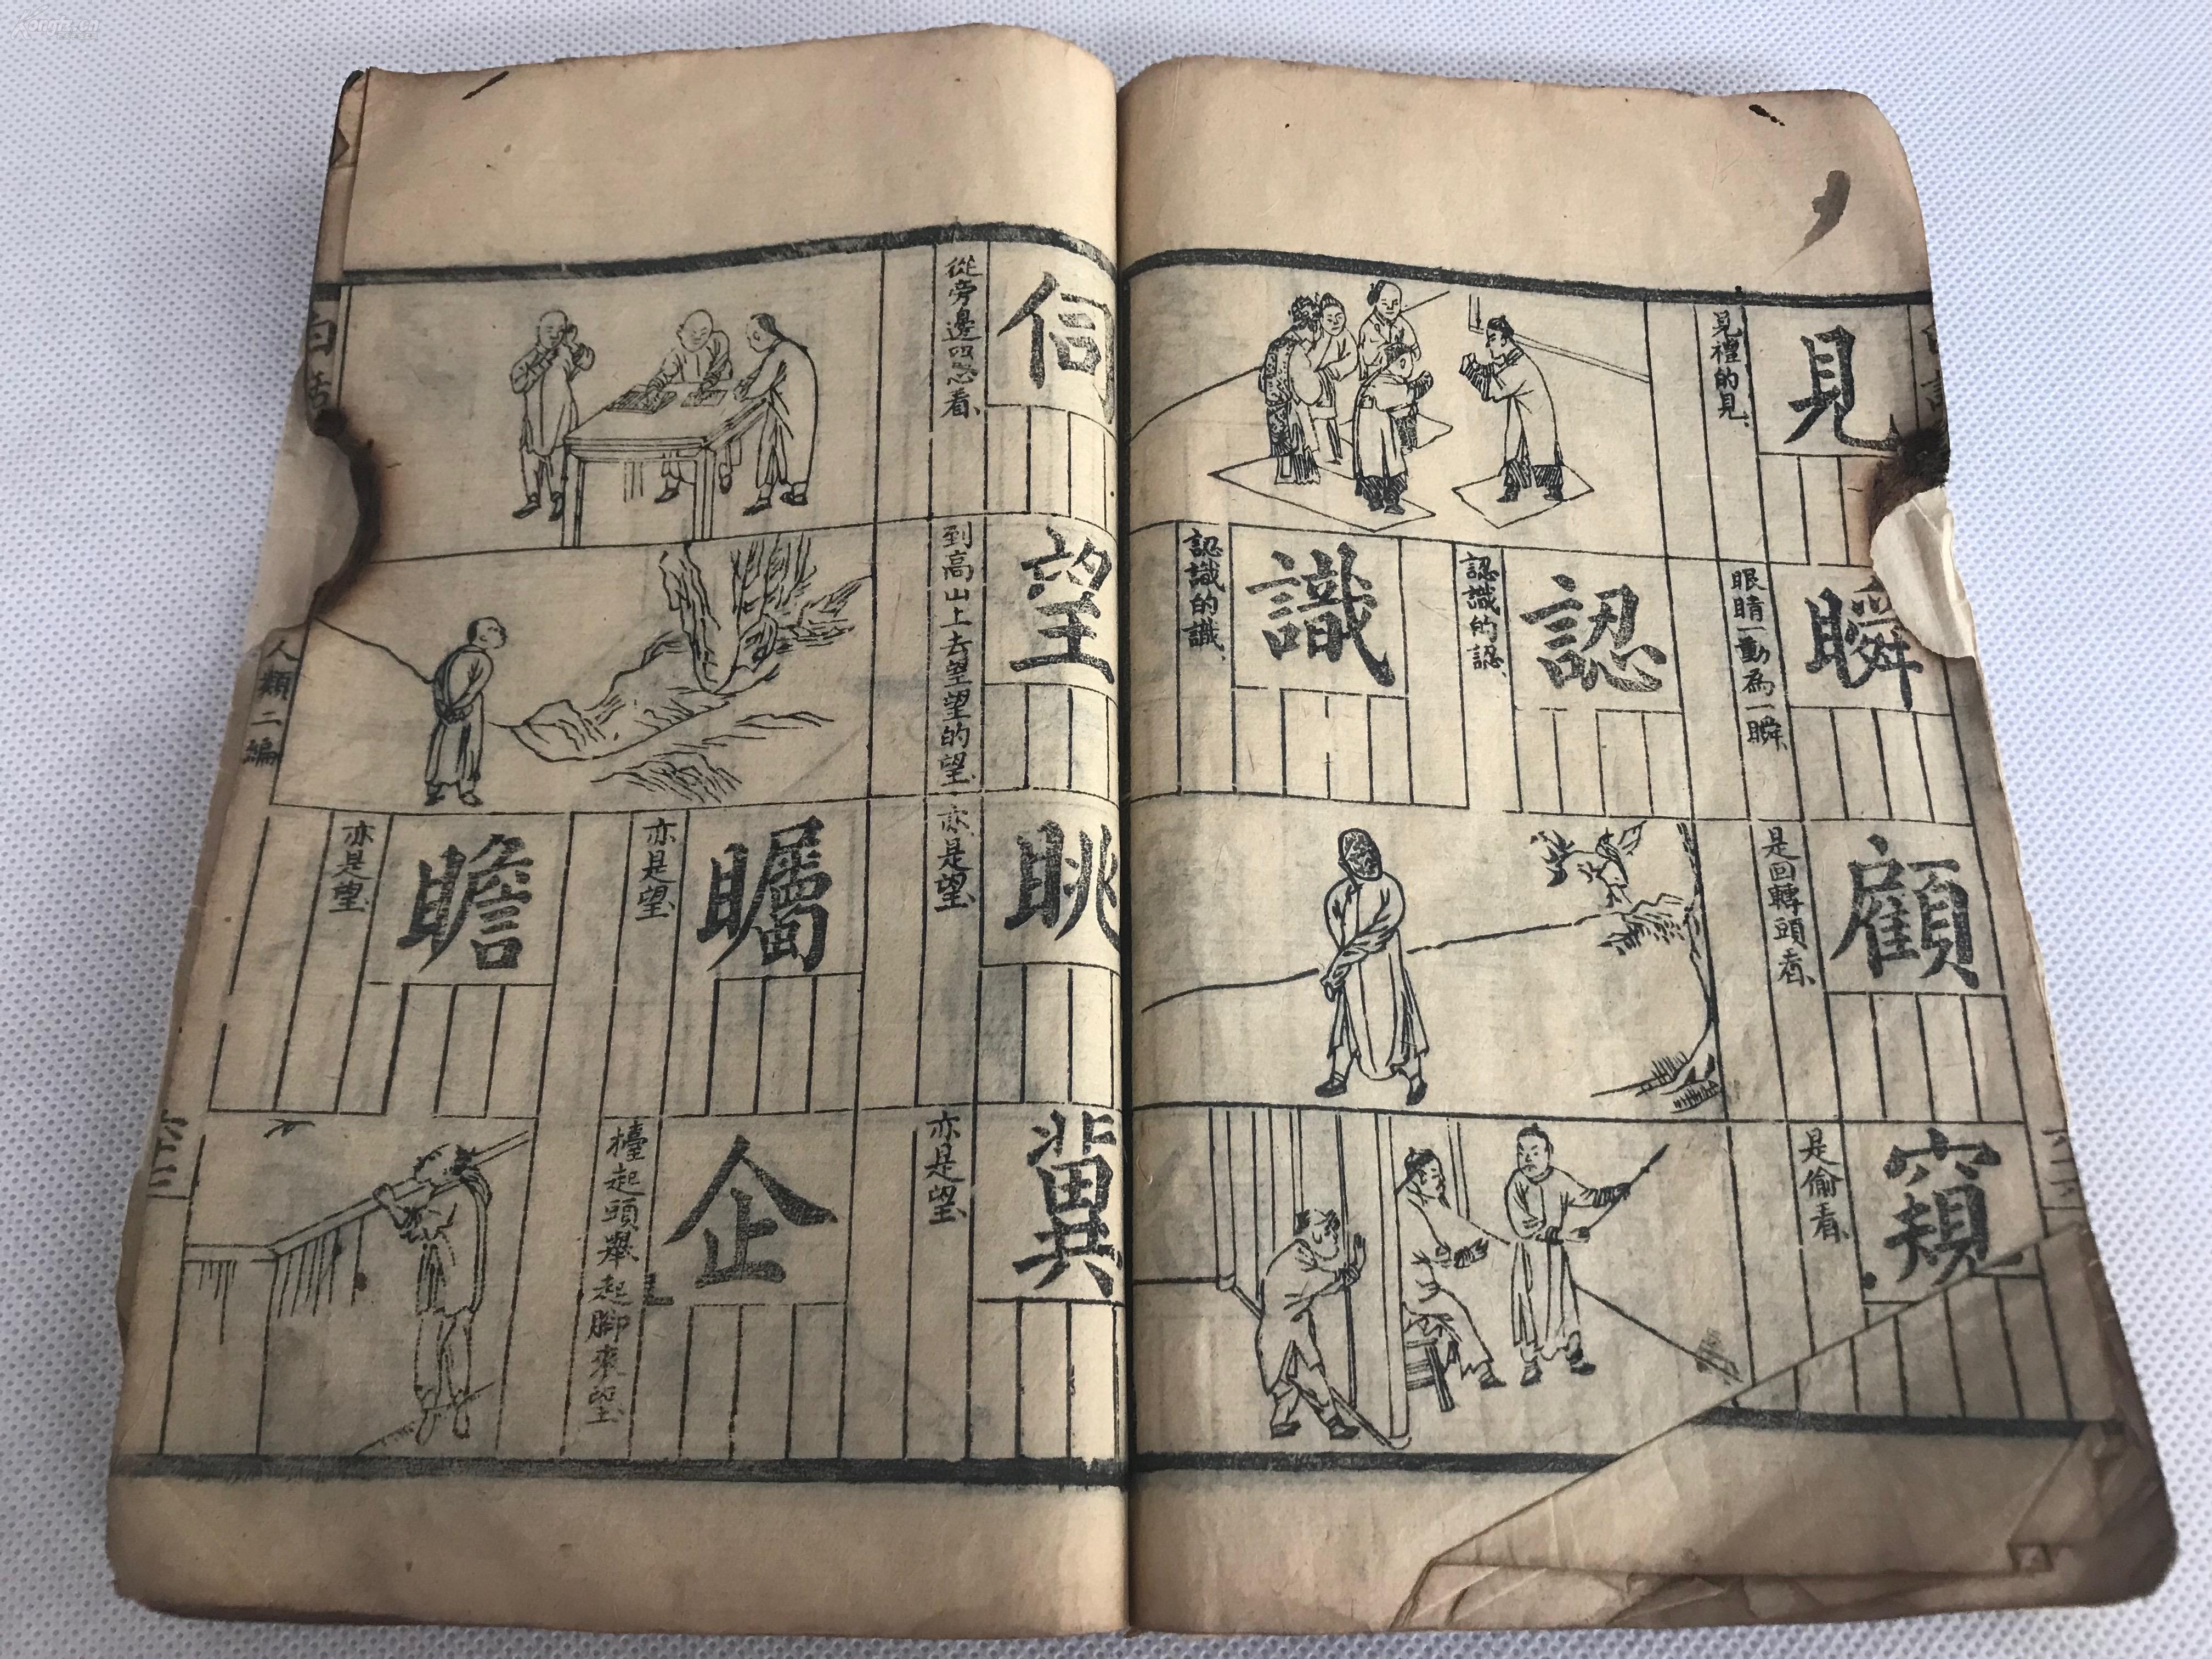 見
見禮的見
瞬
眼睛一動為一瞬
認
認識的認
識
認識的識
顧
是回轉頭看
窺
是偷看
伺
從旁邊四忽看
望
到高山上去望望的望
眺
亦是望
矚
亦是望
瞻
亦是望
兾
亦是望
企
檯起頭舉起腳來望
白話
人類二編
Kongfz.cn